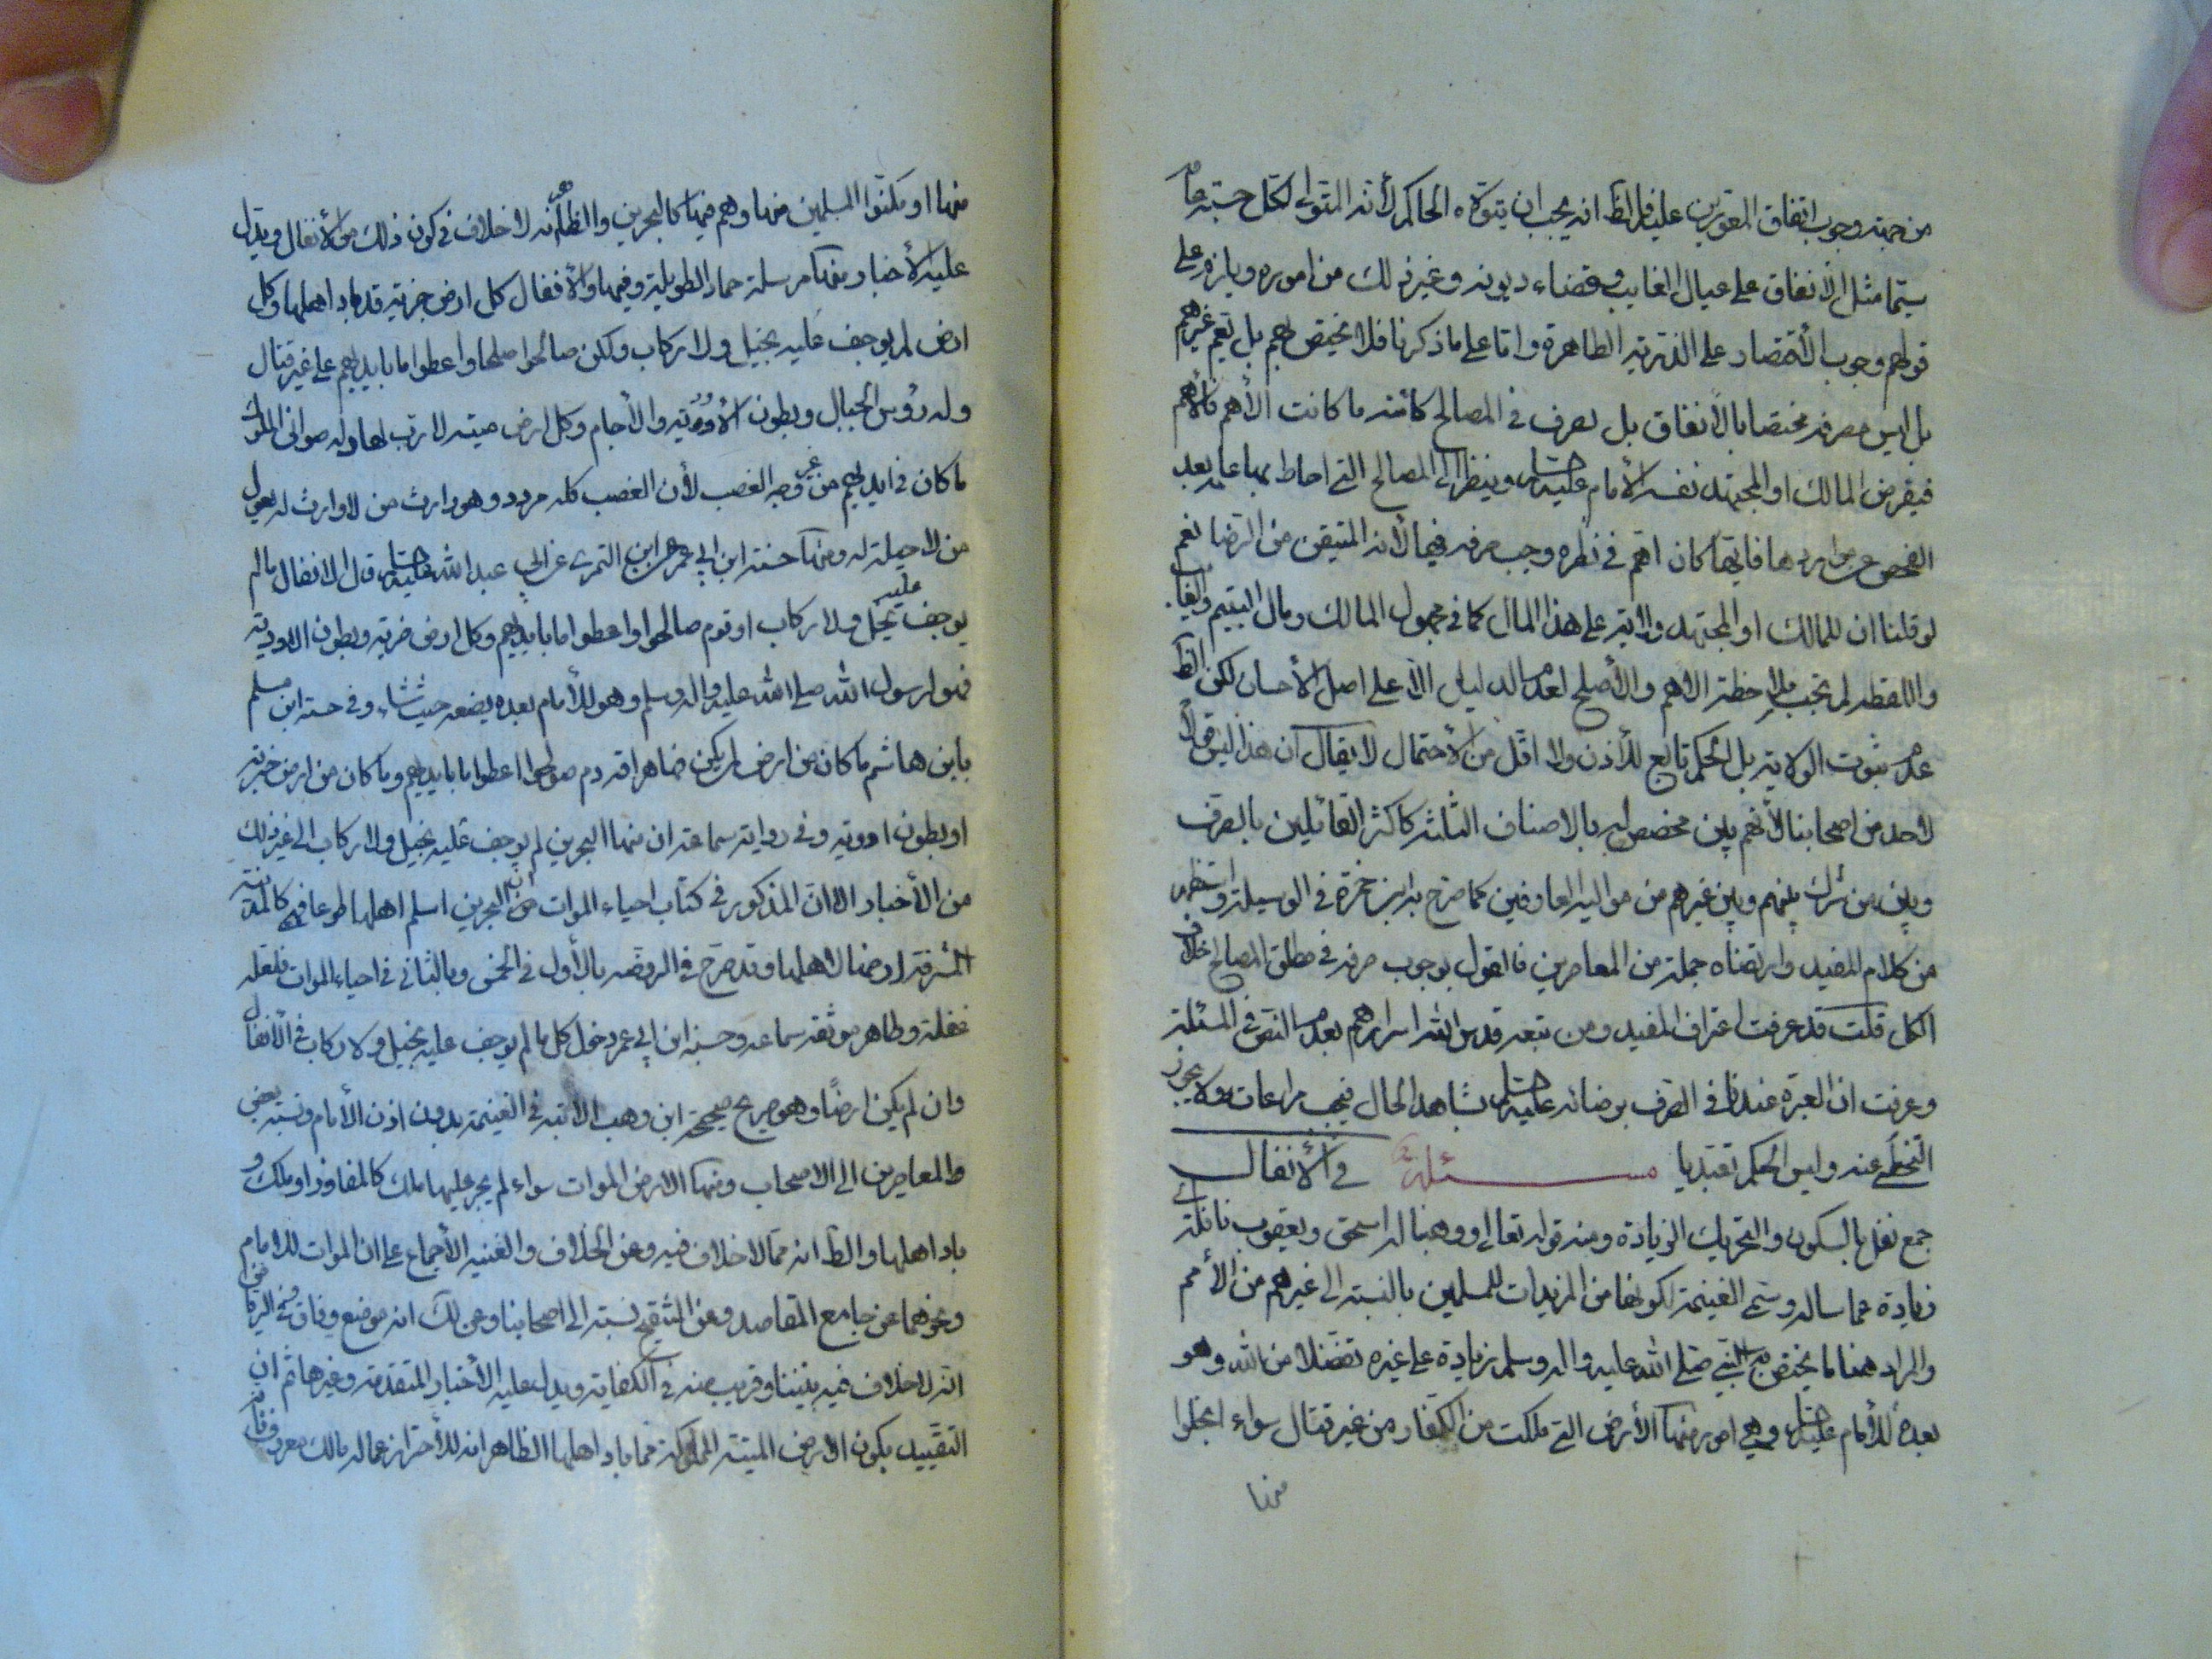 من جهته وجوب انفاق المعوزين عليه فالظ انه يجب ان يتولاه الحاكم لأنه المتولى لكل حسبة عامة
سيّما مثل الأنفاق على عيال الغايب وقضاء ديونه وغير ذلك من اموره ويلزم على
قولهم وجوب الأقتصار على الذرية الطاهرة وامّا على ما ذكرنا فلا يختص بهم بل يعم غيرهم
بل ليس مصرفه مختصا بالأنفاق بل يصرف في المصالح كائنة ما كانت الأهم فالأهم
فيفرض المالك او المجتهد نفسه الأمام عليه السلام وينظر الى المصالح التي احاط بها علمه بعد
الفحص عن مواردها فايّها كان اهم في نظره وجب صرفه فيها لأنه المتيقن من الرضا نعم
لو قلنا ان للمالك او المجتهد ولاية على هذا المال كما في مجهول المالك ومال اليتيم والغائب
واللقطه لم تجب ملاحظة الاهم والأصلح لعدم الدليل الا على اصل الأحسان لكن الظ
عدم ثبوت الولاية بل الحكم تابع للأذن ولا اقل من الأحتمال لا يقال ان هذا ليس قولا
لاحد من اصحابنا لأنهم بين مخصص له بالاصناف الثلثة كاكثر القائلين بالصرف
وبين من شرك بينهم وبين غيرهم من مواليه العارفين كما صرح به ابن حمزة في الوسيلة واستظهر
من كلام المفيد وارتضاه جملة من المعاصرين فالقول بوجوب صرفه في مطلق المصالح خلاف
الكل قلت قد عرفت اعتراف المفيد ومن تبعه قدس الله اسرارهم بعدم النص في المسئلة
وعرفت ان العبرة عندنا في التصرف برضائه عليه السلام بشاهد الحال فيجب مراعاته ولا يجوز
التخطي عنه وليس الحكم تعبديا مسئلة في الأنفال
جمع نفل بالسكون والتحريك الزيادة ومنه قوله تعالى ووهبنا له اسحق ويعقوب نافلة اى
زيادة عما ساله وسمى الغنيمة لكونها من المزيدات للمسلمين بالنسبة الى غيرهم من الأمم
والمراد هنا ما يختص به النبي صلى الله عليه واله وسلم زيادة على غيره تفضلا من الله وهو
بعده للأمام عليه السلام وهي امور منها الأرض التي ملكت من الكفار من غير قتال سواء انجلوا
منها
منها او مكّنوا المسلمين منها وهم فيها كالبحرين والظ انه لا خلاف في كون ذلك من الأنفال ويدل
عليه الأخبار منها مرسلة حماد الطويلة وفيها والأنفال كل ارض خربة قد باد اهلها وكل
ارض لم يوجف عليه بخيل ولا ركاب ولكن صالحوا صلحا واعطوا ما بايديهم على غير قتال
وله رؤس الجبال وبطون الأودية والأجام وكل ارض ميتة لا رب لها وله صوافى الملوك
ما كان في ايديهم من غير وجه الغصب لأن الغصب كله مردود وهو وارث من لا وارث له يعول
من لا حيلة له ومنها حسنة ابن ابي عمير عن ابي عبد الله عليه السلام قال الانفال ما لم
يوجف عليه بخيل ولا ركاب او قوم صالحوا او اعطوا ما بايديهم وكل ارض خربة وبطون الاودية
فهو لرسول الله صلى الله عليه واله وسلم وهو للأمام بعده يضعه حيث شاء وفي حسنة ابن مسلم
بابن هاشم ما كان من ارض لم يكن فيها هراقة دم صولحوا اعطوا ما بايديهم وما كان من ارض خربة
او بطون اودية وفي رواية سماعة ان منها البحرين لم يوجف عليه بخيل ولا ركاب الى غير ذلك
من الأخبار الا ان المذكور في كتاب احياء الموات ان البحرين اسلم اهلها طوعا فهى كالمدينة
المشرفة ارضها لاهلها وقد صرح في الروضه بالأول في الخمس وبالثاني في احياء الموات فلعله
غفلة وظاهر موثقة سماعه وحسنة ابن ابي عمير دخول كل ما لم يوجف عليه بخيل ولا ركاب في الأنفال
وان لم يكن ارضا وهو صريح صحيحة ابن وهب الآتية في الغنيمة بدون اذن الأمام ونسبه بعض
المعاصرين الى الاصحاب ومنها الارض الموات سواء لم يجر عليها ملك كالمفاوز او ملك و
باد اهلها والظ انه مما لا خلاف فيه وعن الخلاف والغنية الأجماع على ان الموات للامام
ونحوهما عن جامع المقاصد وعن التنقيح نسبته الى اصحابنا وعن لك انه موضع وفاق وفي الرياض
انه لا خلاف فيه بيننا وقريب منه في الكفاية ويدل عليه الأخبار المتقدمة وغيرها ثم ان
التقييد بكون الارض الميتة المملوكة مما باد اهلها الظاهر انه للأحتراز عما له مالك معروف فانه